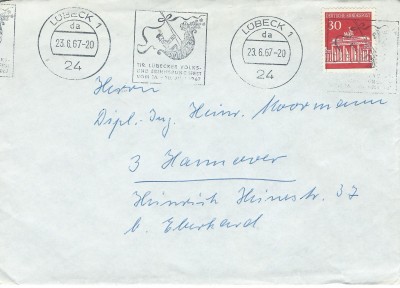 LÜBECK 1
da
23.6.67-20
24
119. LÜBECKER VOLKS-
UND
LÜBECK 1
da
23.6.67-20
24
DEUTSCHE BUNDESPOST
30
Herrn
Dipl.-Ing. Heinr. Moormann
3 Hannover
Heinrich Heinestr. 37
b. Eberhard